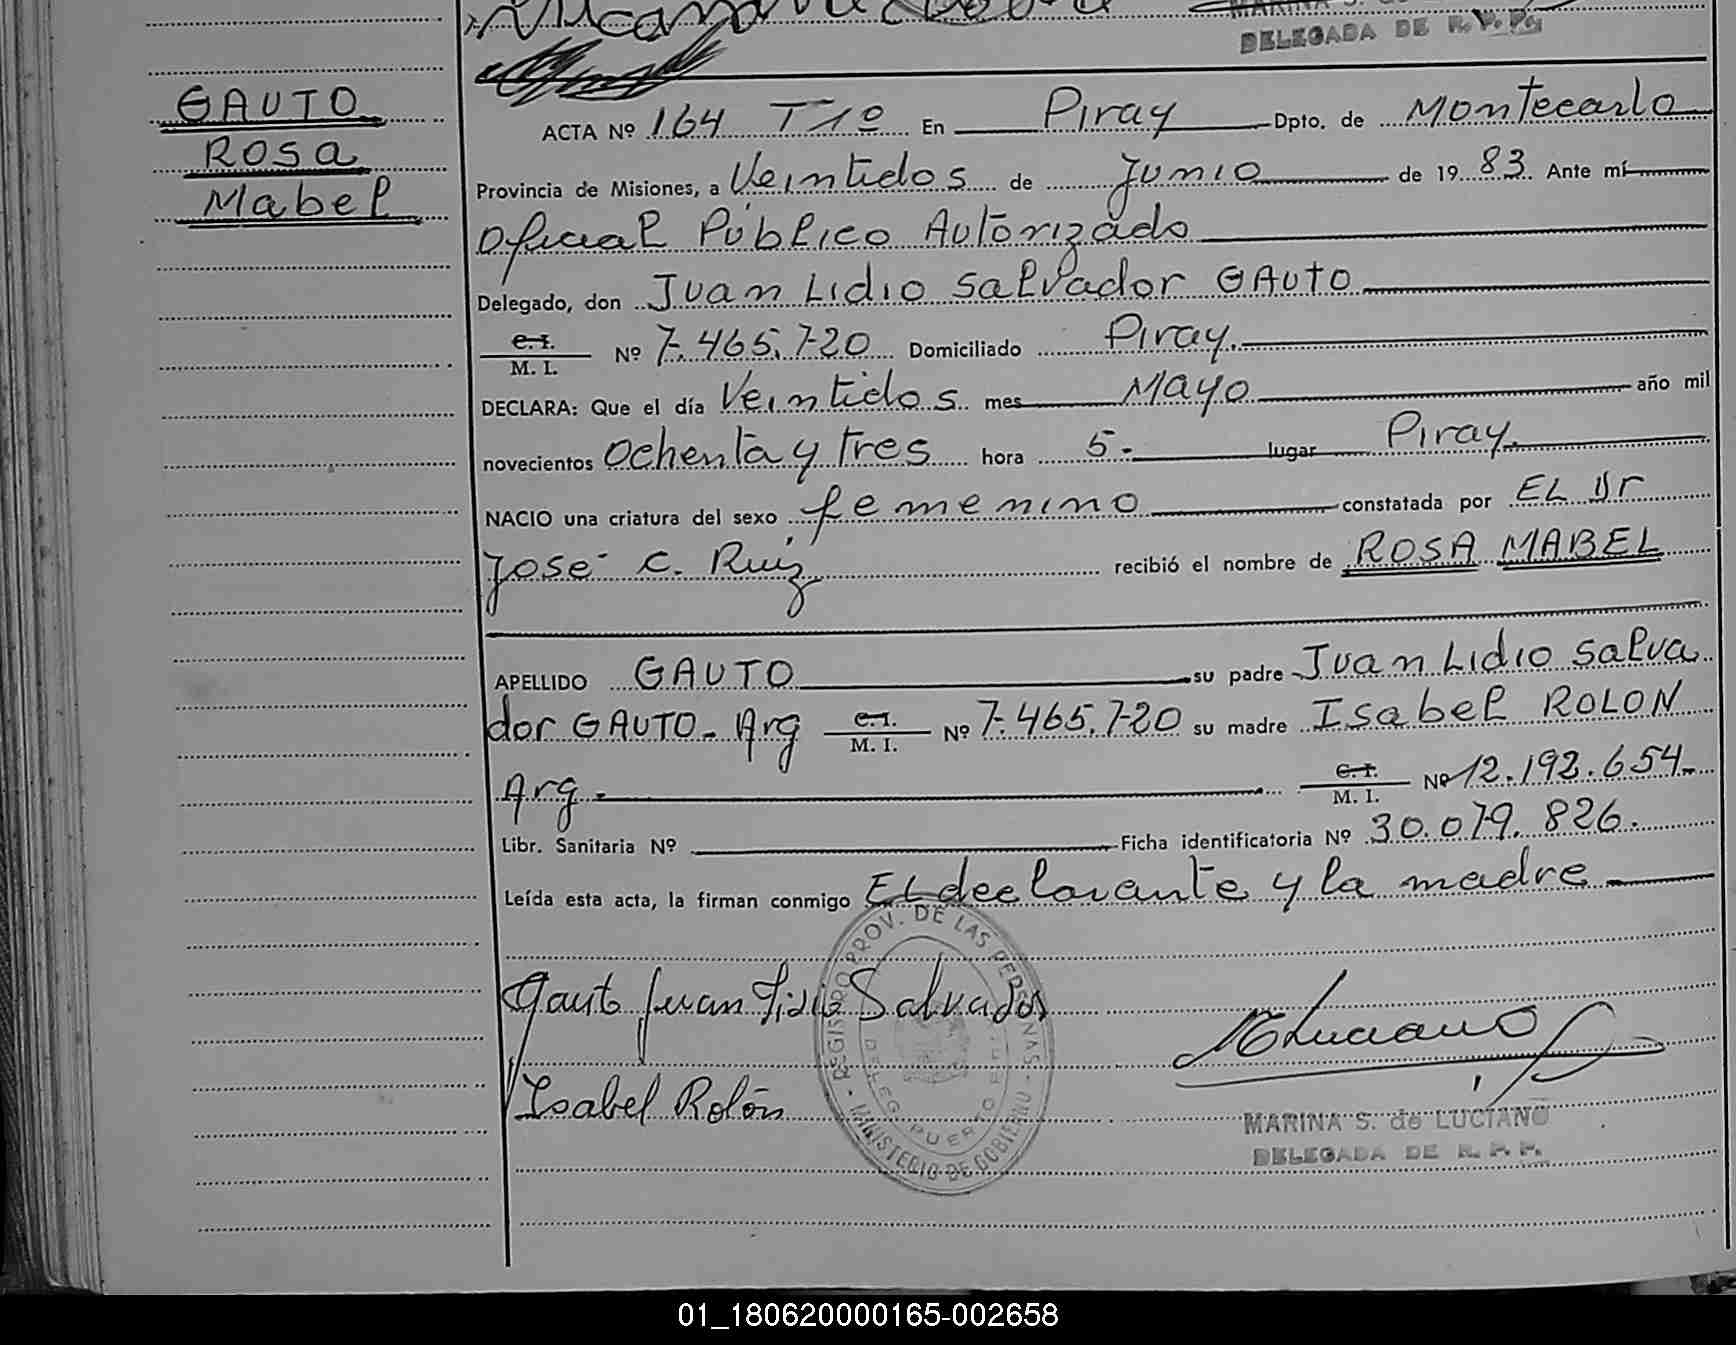 DELEGADA DE R. P. P.
GAUTO
ROSA
Mabel
ACTA Nº 164 T 1º En Piray Dpto. de Montecarlo
Provincia de Misiones, a Veintidos de Junio de 1983. Ante mí
Oficial Público Autorizado
Delegado, don Juan Lidio Salvador GAUTO
C. I.
M. I. Nº 7.465.720 Domiciliado Piray.
DECLARA: Que el día Veintidos mes Mayo año mil
novecientos Ochenta y Tres hora 5.- lugar Piray.
NACIO una criatura del sexo femenino constatada por EL Dr
José C. Ruiz recibió el nombre de ROSA MABEL
APELLIDO GAUTO su padre Juan Lidio Salva
dor GAUTO - Arg C. I.
M. I. Nº 7.465.720 su madre Isabel ROLON
Arg. - C. I.
M. I. Nº 12.192.654.-
Libr. Sanitaria Nº Ficha identificatoria Nº 30.079.826.
Leída esta acta, la firman conmigo EL declarante y la madre
REGISTRO PROV. DE LAS PERSONAS - MINISTERIO DE GOBIERNO -
Gauto Juan Lidio Salvador
Isabel Rolón
MARINA S. de LUCIANO
DELEGADA DE R. P. P.
01_180620000165-002658